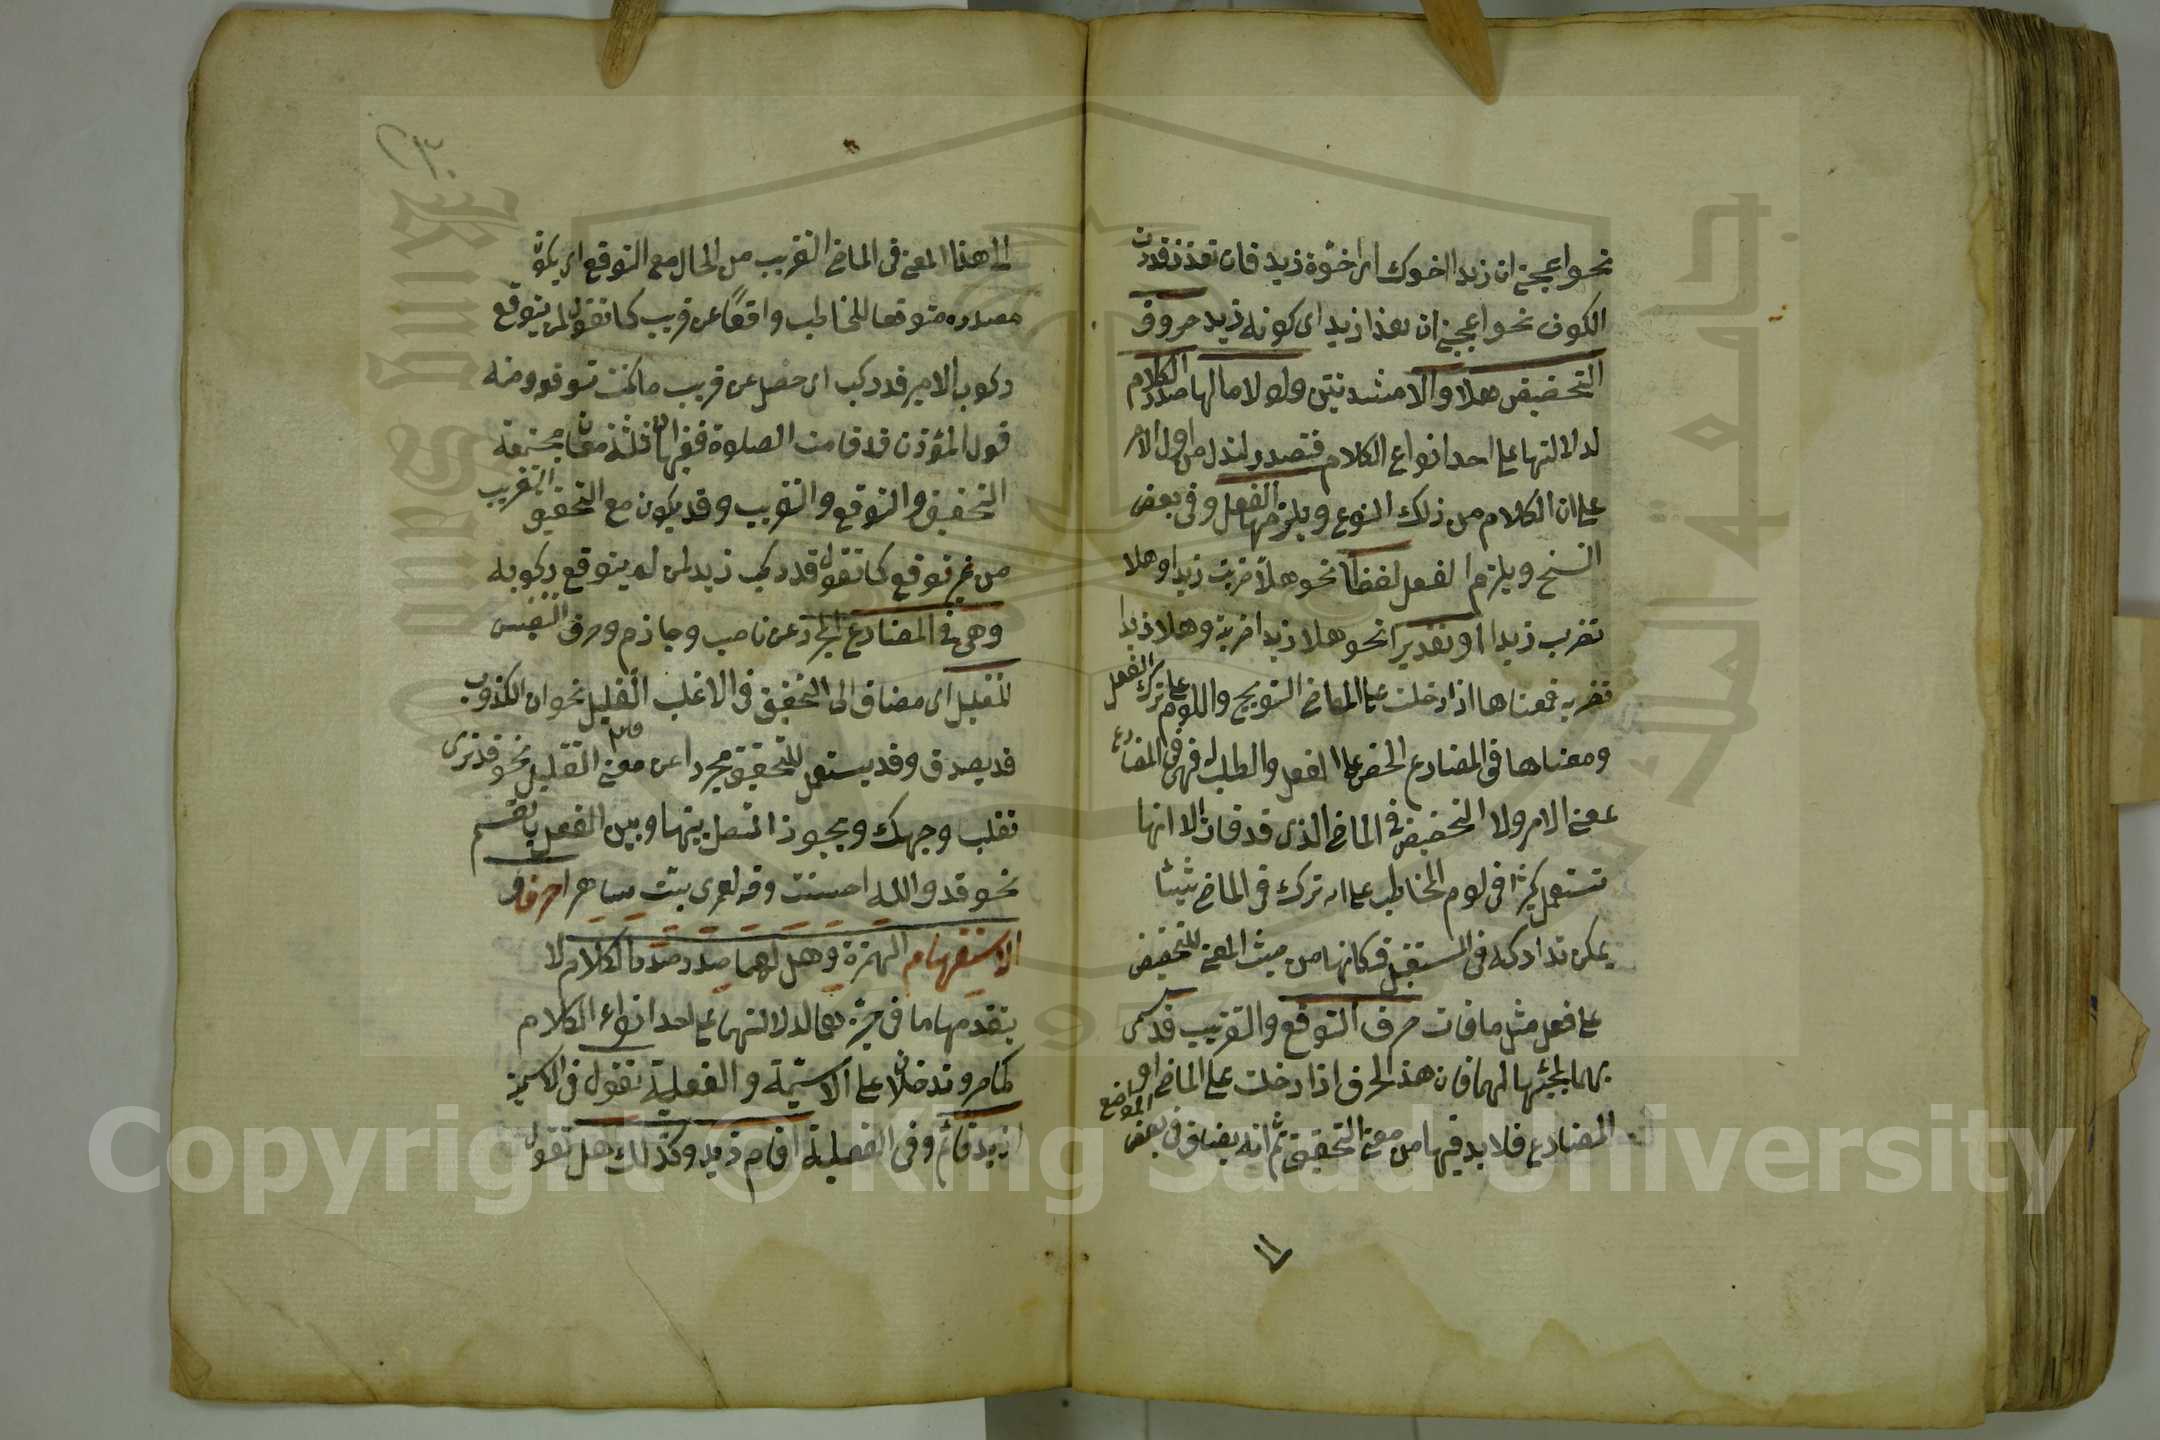 نحو اعجبنى ان زيدا اخوك اى اخوة زيد فان تعذر قدرت
الكون نحو اعجبنى ان هذا زيد اى كونه زيد حروف
التحضيض هلا والا مشددتين ولولا ولوما لها صدر الكلام
لدلالتها على احد انواع الكلام فتصدر لتدل من اول الامر
على ان الكلام من ذلك النوع ويلزمها الفعل وفى بعض
النسخ ويلزم الفعل لفظا نحو هلا ضربت زيدا وهلا
تضرب زيدا او تقديرا نحو هلا زيدا ضربته وهلا زيدا
تضربه فمعناها اذا دخلت على الماضى التوبيخ واللوم على ترك الفعل
ومعناها فى المضارع الحض على الفعل والطلب له فهى فى المضارع
بمعنى الامر ولا التحضيض فى الماضى الذى قد فات الا انها
تستعمل كثيرا فى لوم المخاطب على انه ترك فى الماضى شيئا
يمكن تداركه فى المستقبل فكانها من حيث المعنى للتحضيض
على فعل مثل ما فات حرف التوقع والتقريب قد سمى
بهما لمجيئها لهما فان هذا الحرف اذا دخلت على الماضى او
المضارع فلا بد فيها من معنى التحقيق ثم انه يضاف فى بعض المواضع
الى هذا المعنى فى الماضى التقريب من الحال مع التوقع اى يكون
مصدره متوقعا للمخاطب واقعًا عن قريب كما تقول لمن يتوقع
ركوب الامير قد ركب اى حصل عن قريب ما كنت تتوقعه ومنه
قول المؤذن قد قامت الصلوة ففيها اذن ثلثة معان مجتمعة
التحقيق والتوقع والتقريب وقد يكون مع التحقيق التقريب
من غير توقع كما تقول قد ركب زيد لمن لم يتوقع ركوبه
وهى فى المضارع المجرد عن ناصب وجازم وحرف التنفيس
للتقليل اى مضاف الى التحقيق فى الاغلب التقليل نحو ان الكذوب
قد يصدق وقد يستعمل للتحقيق مجردا عن معنى التقليل نحو قد نرى
تقلب وجهك ويجوز الفصل بينها وبين الفعل بالقسم
نحو قد والله احسنت وقد لعمرى بت ساهرا حرفا
الاستفهام الهمزة وهل لهما صدر الكلام لا
يتقدمها ما فى حيزهما لدلالتهما على احد انواع الكلام
كما مر وتدخلان على الاسمية والفعلية تقول فى الاسمية
ازيد قائم وفى الفعلية اقام زيد وكذلك هل تقول
Copyright © King Saud University
جامعة الملك
King Saud
1957